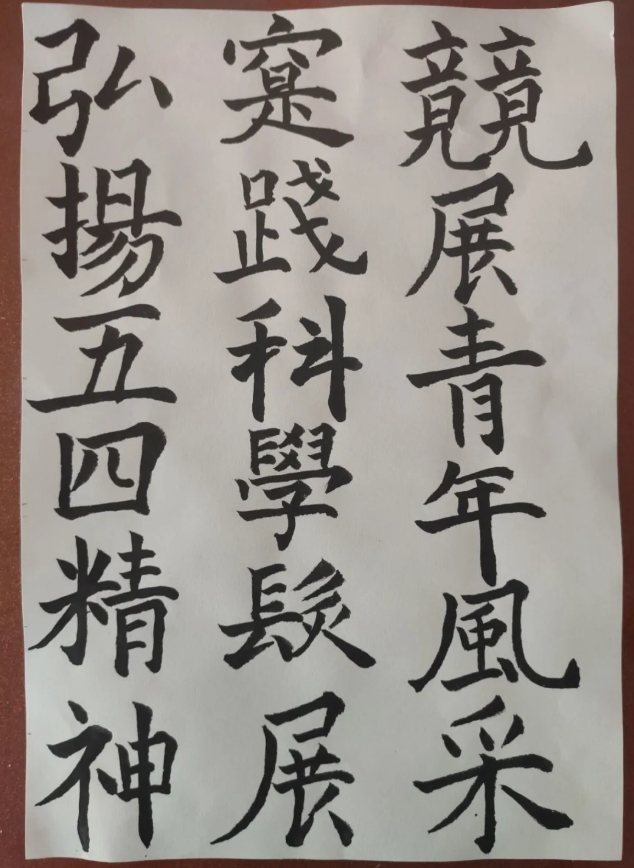 弘揚五四精神
寔踐科學髮展
競展青年風采